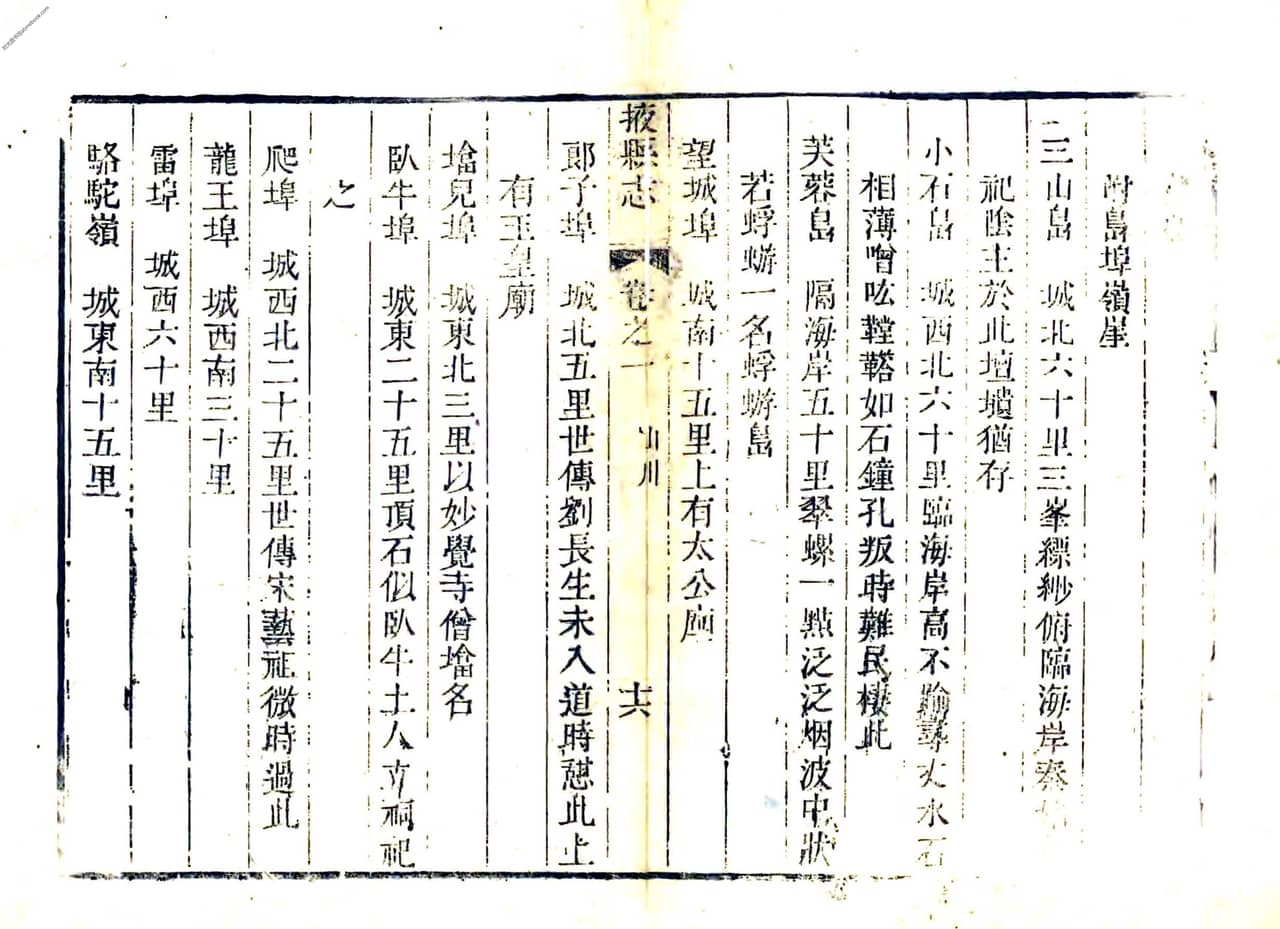 附島埠嶺崖
三山島　城北六十里三峯縹緲俯臨海岸秦
祀陰主於此壇墳猶存
小石島　城西北六十里臨海岸高不踰尋丈水石
相薄噌吰鞺鞳如石鐘孔叛時難民棲此
芙蓉島　隔海岸五十里翠螺一點泛泛烟波中狀
若蜉蝣一名蜉蝣島
望城埠　城南十五里上有太公廟
掖縣志　卷之一　山川　十六
郎子埠　城北五里世傳劉長生未入道時憇此上
有玉皇廟
墖兒埠　城東北三里以妙覺寺僧墖名
臥牛埠　城東二十五里頂石似臥牛土人立祠祀
之
爬埠　城西北二十五里世傳宋藝祖微時過此
龍王埠　城西南三十里
雷埠　城西六十里
駱駝嶺　城東南十五里